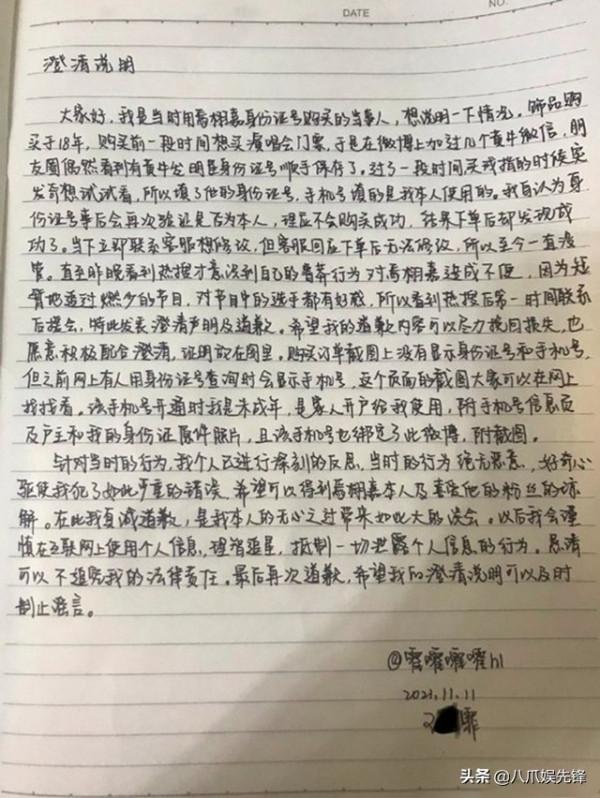 DATE
NO.
澄清说明
大家好，我是当时用焉栩嘉身份证号购买的当事人，想说明一下情况。饰品购
买于18年，购买前一段时间想买演唱会门票，于是在微博上加过几个黄牛微信，朋
友圈偶然看到有黄牛发明星身份证号顺手保存了。过了一段时间买戒指的时候突
发奇想试试看，所以填了他的身份证号，手机号填的是我本人使用的。我自认为身
份证号事后会再次验证是否为本人，理应不会购买成功，结果下单后却发现成
功了。当下立即联系客服想修改，但客服回应下单后无法修改，所以至今一直没
管。直至昨晚看到热搜才意识到自己的鲁莽行为对焉栩嘉造成不便，因为短
暂地追过燃少的节目，对节目中的选手都有好感，所以看到热搜后第一时间联系
后援会，特此发表澄清声明及道歉。希望我的道歉内容可以尽力挽回损失，也
愿意积极配合澄清，证明放在图里。购买订单截图上没有显示身份证号和手机号，
但之前网上有人用身份证号查询时会显示手机号，这个页面的截图大家可以在网上
找找看。该手机号开通时我是未成年，是家人开户给我使用，附手机号信息页
及户主和我的身份证原件照片，且该手机号也绑定了此微博，附截图。
与针对当时的行为，我个人已进行深刻的反思，当时的行为绝无恶意，好奇心
驱使我犯了如此严重的错误，希望可以得到焉栩嘉本人及喜欢他的粉丝的谅
解。在此我真诚道歉，是我本人的无心之过带来如此大的误会。以后我会谨
慎在互联网上使用个人信息，理智追星，抵制一切泄露个人信息的行为。恳请
可以不追究我的法律责任。最后再次道歉，希望我的澄清说明可以及时
制止谣言。
@嚯嚯嚯嚯hl
2021.11.11
霏
头条 @八爪娱先锋